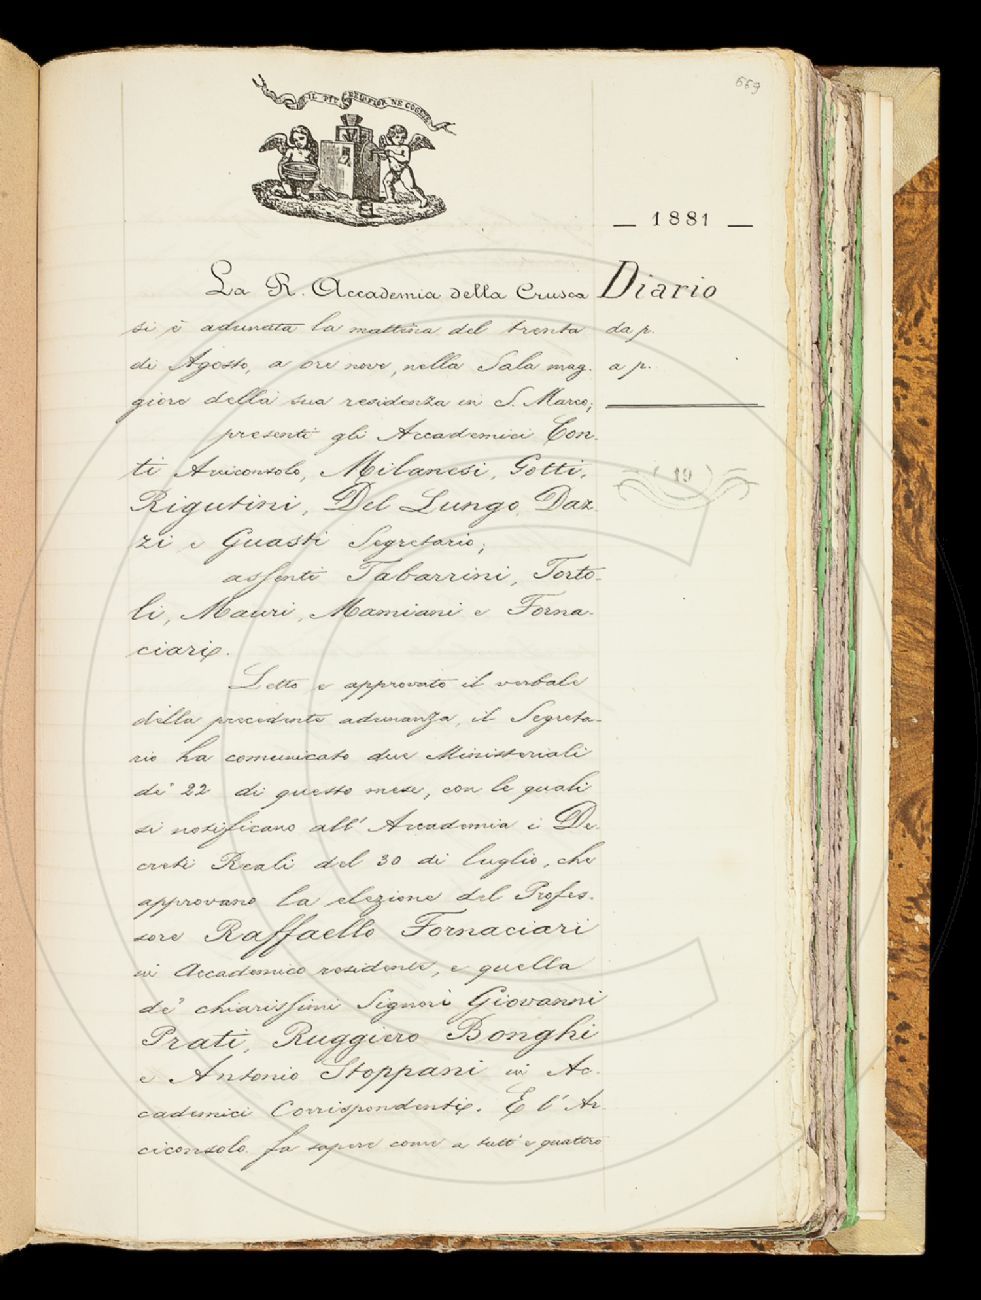 669
IL PIÙ BEL FIOR NE COGLIE
— 1881 —
La R. Accademia della Crusca
Diario
si è adunata la mattina del trenta
da p.
di Agosto, a ore nove, nella Sala mag-
a p.
giore della sua residenza in S. Marco;
presenti gli Accademici Con-
ti Arciconsolo, Milanesi, Gotti,
(19)
Rigutini, Del Lungo, Daz-
zi e Guasti Segretario;
assenti Tabarrini, Torto-
li, Mauri, Mamiani e Forna-
ciari.
Letto e approvato il verbale
della precedente adunanza, il Segreta-
rio ha comunicato due Ministeriali
de' 22 di questo mese, con le quali
si notificano all'Accademia i De-
creti Reali del 30 di luglio, che
approvano la elezione del Profes-
sore Raffaello Fornaciari
in Accademico residente, e quella
de' chiarissimi Signori Giovanni
Prati, Ruggiero Bonghi
e Antonio Stoppani in Ac-
cademici Corrispondenti. E l'Ar-
ciconsolo fa sapere come a tutt'e quattro